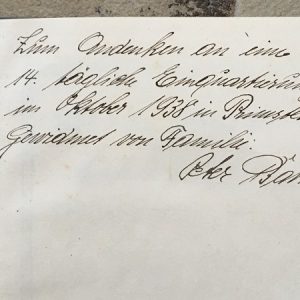 Zum Andenken an eine
14. tägliche Einquartierun
im Oktober 1938 in
Gewidmet von Familie:
Peter